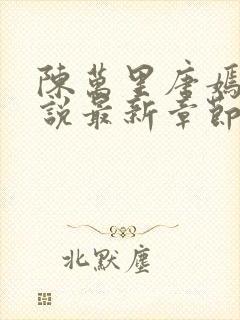 陳萬里唐嫣
說最新章節
北默塵